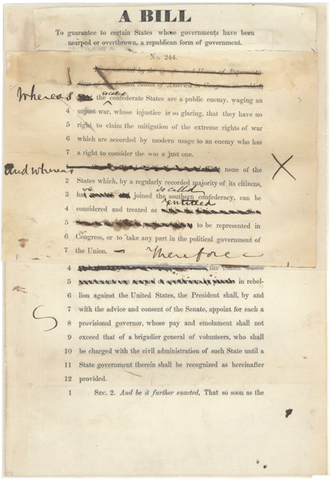 A BILL
To guarantee to certain States whose governments have been
usurped or overthrown, a republican form of government.
No. 244.
Whereas so called
the confederate States are a public enemy, waging an
4 unjust war, whose injustice is so glaring, that they have no
5 right to claim the mitigation of the extreme rights of war
6 which are accorded by modern usage to an enemy who has
7 a right to consider the war a just one.
And whereas none of the
2 States which, by a regularly recorded majority of its citizens,
so called
3 joined the southern confederacy, can be
entitled
4 considered and treated as
5 to be represented in
6 Congress, or to take any part in the political government of
7 the Union. — Therefore
X
4
5 in rebel-
6 lion against the United States, the President shall, by and
7 with the advice and consent of the Senate, appoint for each a
8 provisional governor, whose pay and emolument shall not
9 exceed that of a brigadier general of volunteers, who shall
10 be charged with the civil administration of such State until a
11 State government therein shall be recognized as hereinafter
12 provided.
1 SEC. 2. And be it further enacted, That so soon as the